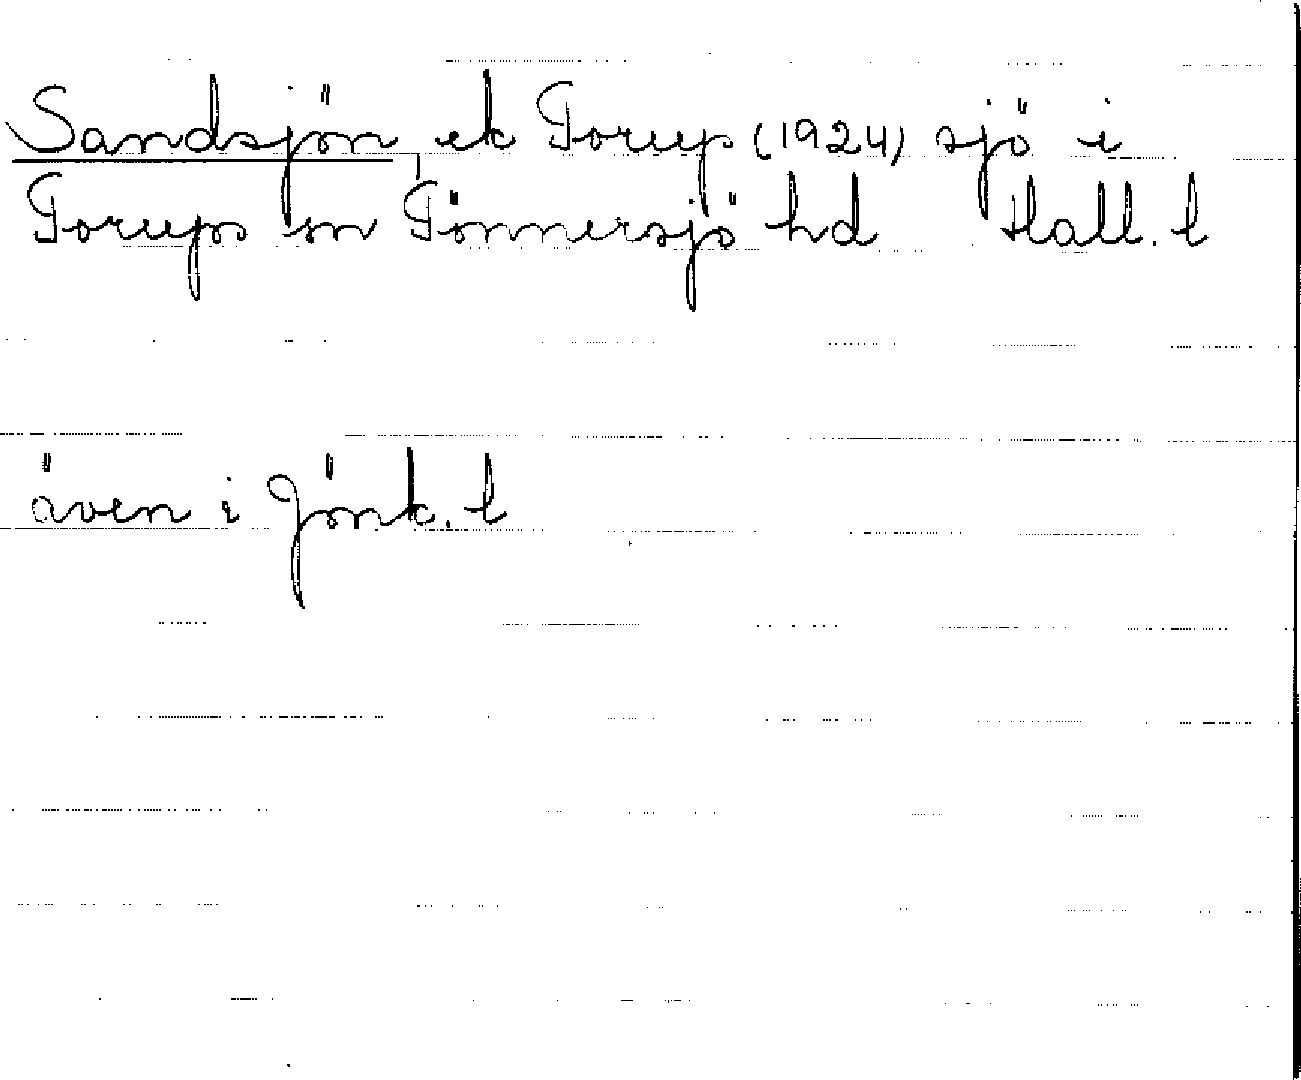 Sandsjön, ek Torup (1924) sjö i
Torups sn Tönnersjö hd Hall. l
även i Jönk. l